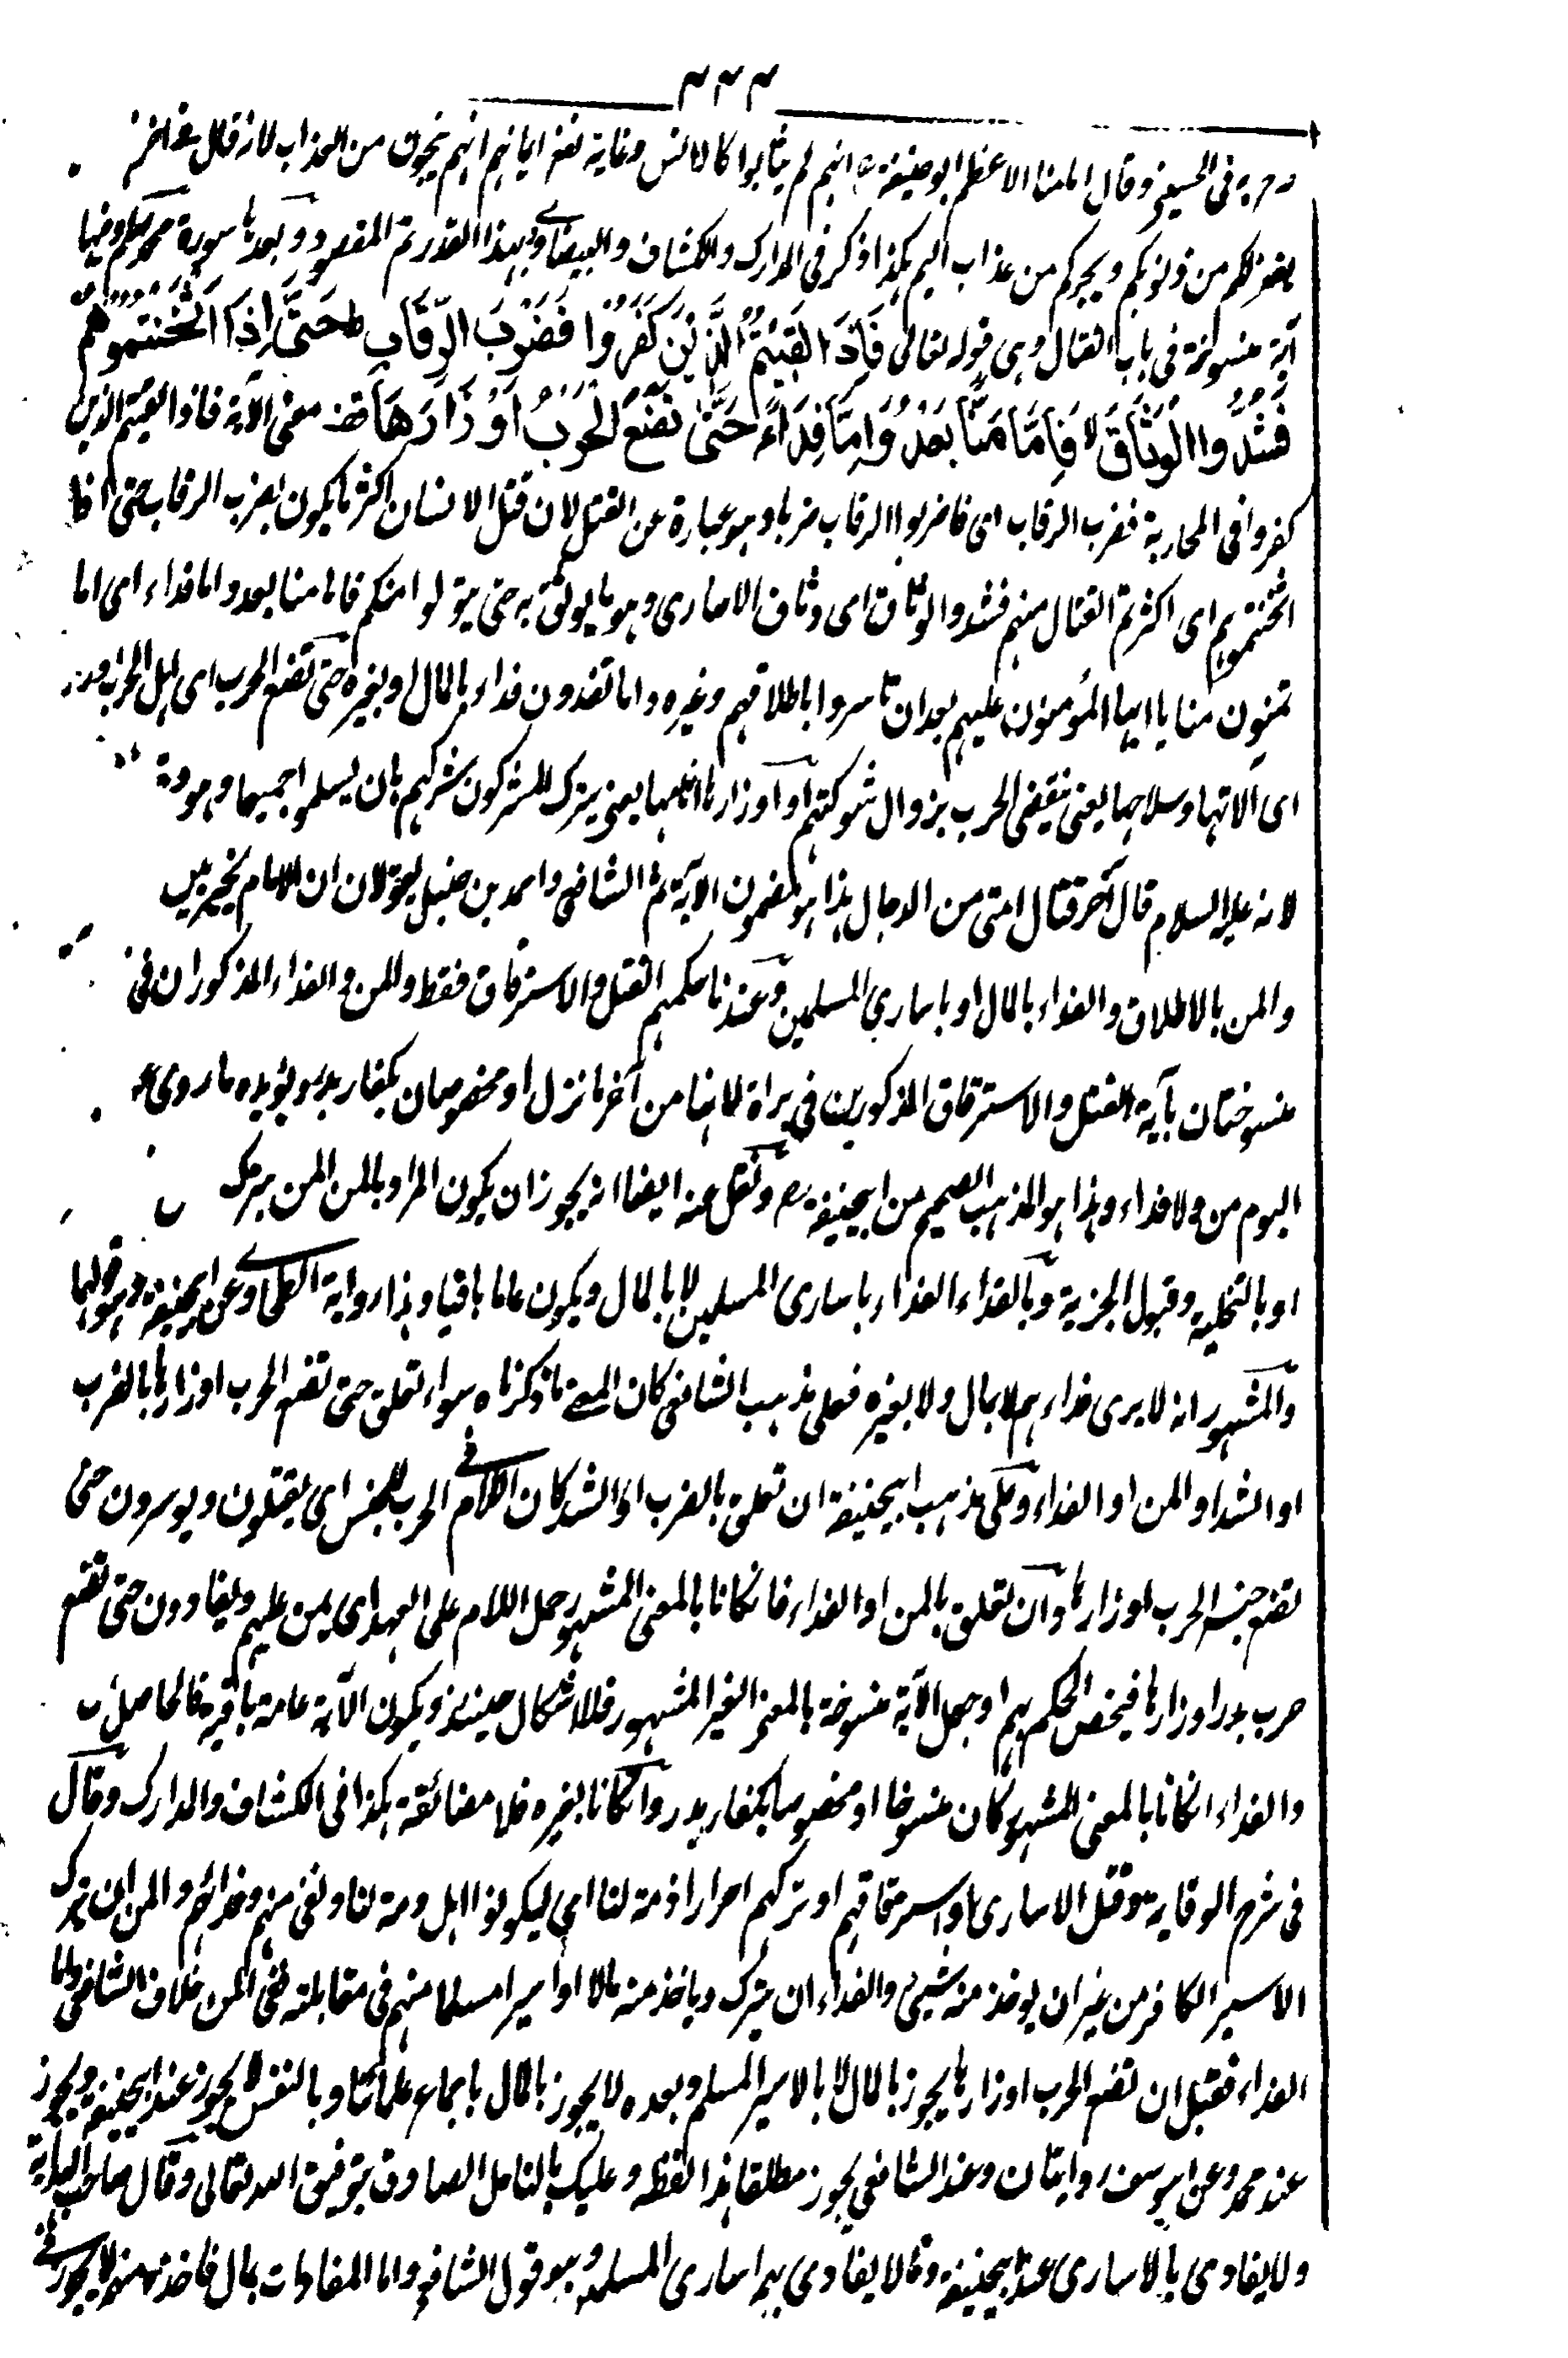 ٣٣٣
في الحسيني وقال امامنا الاعظم ابو حنيفة رح انهم لم يثابوا كالانس وغاية نفع ايمانهم انهم ينجون من العذاب لانه قال
يغفر لكم من ذنوبكم ويجركم من عذاب اليم هكذا ذكر في المدارك والكشاف والبيضاوي وبهذا القدر تم المقصود وبعدها سورة محمد صلعم وفيها
آية منسوخة في باب القتال وهي قوله تعالى فَاِذَا لَقِيْتُمُ الَّذِيْنَ كَفَرُوْا فَضَرْبَ الرِّقَابِ ط حَتّٰى اِذَا اَثْخَنْتُمُوْهُمْ
فَشُدُّوا الْوَثَاقَ لا فَاِمَّا مَنًّا بَعْدُ وَاِمَّا فِدَاءً حَتّٰى تَضَعَ الْحَرْبُ اَوْزَارَهَا معنى الآية فاذا لقيتم الذين
كفروا في المحاربة فضرب الرقاب اى فاضربوا الرقاب ضربا وهو عبارة عن القتل لان قتل الانسان اكثر ما يكون بضرب الرقاب حتى اذا
اثخنتموهم اى اكثرتم القتال منهم فشدوا الوثاق اى وثاق الاسارى وهو ما يوثق به حتى يتولوا منكم فاما منا بعد واما فداء اى اما
تمنون منا يا ايها المؤمنون عليهم بعد ان تاسروا باطلاقهم وغيره واما تفدون فداء بالمال او بغيره حتى تضع الحرب اى اهل الحرب
اى آلاتها وسلاحها يعنى ينقضى الحرب بزوال شوكتهم او اوزارها اثامها يعنى يترك المشركون شركهم بان يسلموا جميعا وهو
لانه عليه السلام قال آخر قتال امتى من الدجال هذا هو مضمون الآية ثم الشافعى واحمد بن حنبل يقولان ان الامام يخير بين
والمن بالاطلاق والفداء بالمال او باسارى المسلمين وعندنا حكمهم القتل والاسترقاق فقط والمن والفداء المذكوران في
منسوختان بآية القتل والاسترقاق المذكورين في براءة لانها من آخر ما نزل او مخصوصان بكفار بدر ويؤيده ما روى
اليوم من ولا فداء وهذا هو المذهب الصحيح من ابيحنيفة رح ونقل عنه ايضا انه يجوز ان يكون المراد بالمن المن بترك
او بالتخلية وقبول الجزية وبالفداء الفداء باسارى المسلمين لا بالمال ويكون عاما باقيا وهذا رواية الطحاوي عن ابيحنيفة وهو قولهما
والمشهور انه لا يرى فداءهم لا بمال ولا بغيره فعلى مذهب الشافعى كان المعنى ما ذكرناه سواء تعلق حتى تضع الحرب اوزارها بالضرب
او الشد او المن او الفداء وعلى مذهب ابيحنيفة ان تعلق بالضرب او الشد كان اللام في الحرب للجنس اى يقتلون ويوسرون حتى
تضع جنس الحرب اوزارها وان تعلق بالمن او الفداء فان كانا بالمعنى المشهور حمل اللام على العهد اى يمن عليهم ويفادون حتى تضع
حرب بدر اوزارها فيخص الحكم بهم او جعل الآية منسوخة بالمعنى الغير المشهور فلا اشكال حينئذ ويكون الآية عامة باقية فالحاصل
والفداء ان كانا بالمعنى المشهور كان منسوخا او مخصوصا بكفار بدر وان كانا بغيره فلا مضائقة هكذا في الكشاف والمدارك وقال
في شرح الوقاية وقتل الاسارى او استرقاقهم او تركهم احرارا ذمة لنا اى ليكونوا اهل ذمة لنا ونفى منهم وفدائهم والمن ان يترك
الاسير الكافر من غير ان يوخذ منه شيىء والفداء ان يترك وياخذ منه مالا او اسيرا مسلما منهم في مقابلته ففى المن خلاف الشافعى واما
الفداء فقبل ان تضع الحرب اوزارها يجوز بالمال لا بالاسير المسلم وبعده لا يجوز بالمال باجماع علمائنا وبالنفس لا يجوز عند ابيحنيفة ويجوز
عند محمد وعن ابي يوسف روايتان وعند الشافعى يجوز مطلقا هذا لفظه وعليك بالتامل الصادق بتوفيق الله تعالى وقال صاحب الهداية
ولا يفادى بالاسارى عند ابيحنيفة وقالا يفادى بهم اسارى المسلمين وهو قول الشافعى واما المفادات بمال فاخذه منهم لا يجوز في